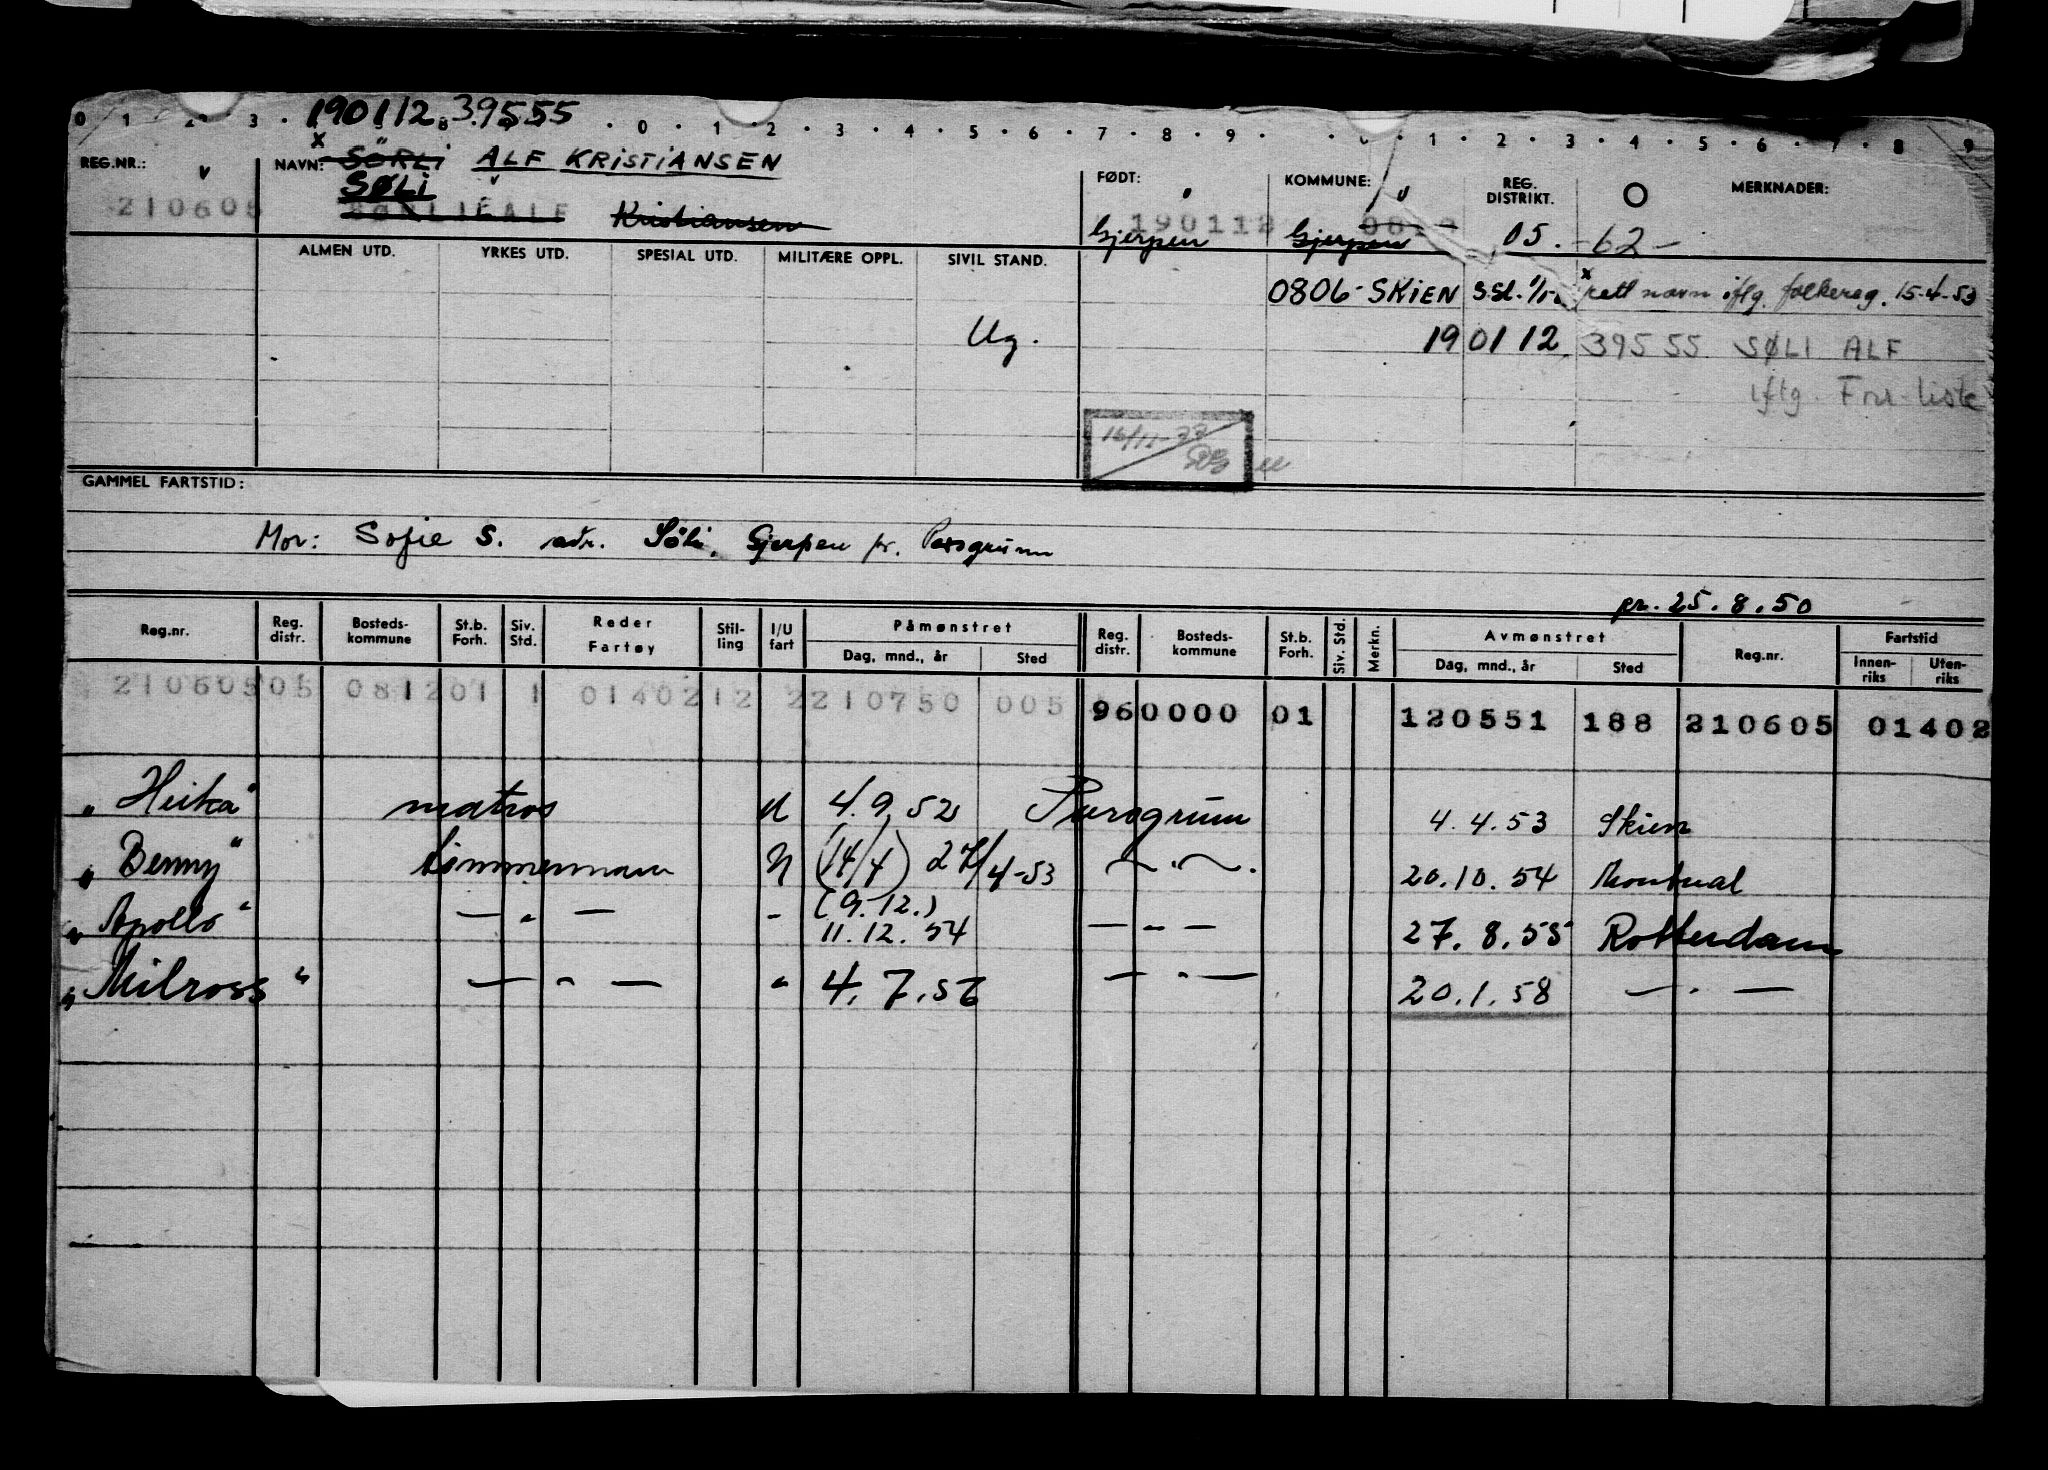 0 1 2 3 . 190112 39555 . 0 . 1 . 2 . 3 . 4 . 5 . 6 . 7 . 8 . 9 . . 0 . 1 . 2 . 3 . 4 . 5 . 6 . 7 . 8 . 9
REG.NR.: v x NAVN: SÖRLI ALF KRISTIANSEN
SØLI
210605 SØRLIE ALF Kristiansen
FØDT: KOMMUNE: REG. DISTRIKT. O MERKNADER:
190112
Gjerpen Gjerpen 05. -62-
ALMEN UTD. YRKES UTD. SPESIAL UTD. MILITÆRE OPPL. SIVIL STAND.
0806-SKIEN x rett navn iflg. folkereg. 15-4-53
Ug. 190112 39555 SØLI ALF
iflg.
GAMMEL FARTSTID:
Mor: Sofie S. adr. Söli, Gjerpen pr. Porsgrunn
pr. 25.8.50
Reg.nr. Reg. distr. Bosteds-kommune St.b. Forh. Siv. Std. Reder Fartøy Stil-ling I/U fart Påmønstret Dag, mnd., år Sted Reg. distr. Bosteds-kommune St.b. Forh. Siv. Std. Merkn. Avmønstret Dag, mnd., år Sted Reg.nr. Fartstid Innen-riks Uten-riks
210605 05 0812 01 1 01402 12 2 210750 005 96 0000 01 120551 188 210605 01402
"Heika" matros U 4.9.52 Porsgrunn 4.4.53 Skien
"Benny" tømmermann U (14/4) 27/4-53 — . — . 20.10.54 Montreal
"Apollo" — " — - (9.12.) 11.12.54 — " — 27.8.55 Rotterdam
"Milross" — " — " 4.7.56 — " — 20.1.58 — " —